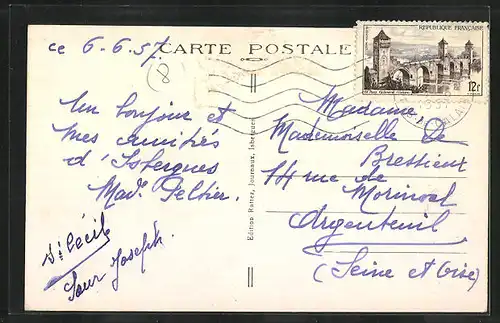 CARTE POSTALE
ce 6-6.57.
8
Un bonjour et
mes amitiés
d'Isbergues
Mad. Peltier.
St Cécile
Pour Joseph.
Edition Rattez, Journaux, Isbergues
REPUBLIQUE FRANÇAISE
12F
Madame
Mademoiselle De
Bressieux
14 rue de
Argenteuil
(Seine et Oise)